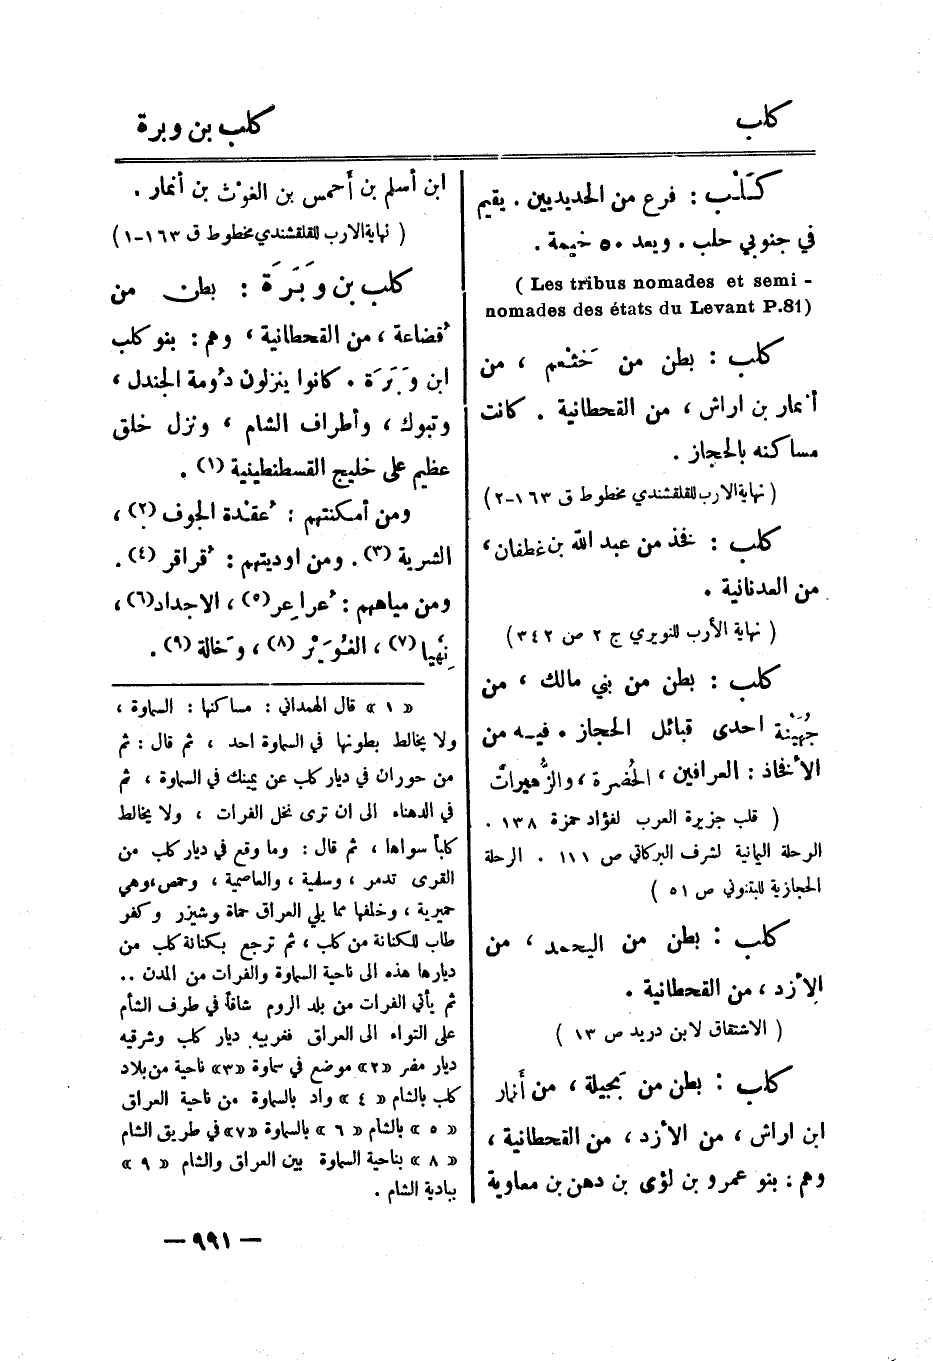 كلب
كلب بن وبرة
كَلْب : فرع من الحديديين . يقيم
في جنوبي حلب . ويعد ٥٠ خيمة .
( Les tribus nomades et semi -
nomades des états du Levant P.81)
كلب : بطن من خَثْعم ، من
أنمار بن اراش ، من القحطانية . كانت
مساكنه بالحجاز .
( نهاية الارب للقلقشندي مخطوط ق ١٦٣-٢)
كلب : فخذ من عبد الله بن غطفان ،
من العدنانية .
( نهاية الأرب للنويري ج ٢ ص ٣٤٢)
كلب : بطن من بني مالك ، من
جُهَيْنة احدى قبائل الحجاز . فيه من
الأفخاذ : العرافين ، الحُضرة ، والزُّهيرات
( قلب جزيرة العرب لفؤاد حمزة ١٣٨ .
الرحلة اليمانية لشرف البركاتي ص ١١١ . الرحلة
الحجازية للبتنوني ص ٥١ )
كلب : بطن من اليحمد ، من
الأزد ، من القحطانية .
( الاشتقاق لابن دريد ص ١٣ )
كلب : بطن من بَجيلة ، من أَنمار
ابن اراش ، من الأزد ، من القحطانية ،
وهم : بنو عمرو بن لؤى بن دهن بن معاوية
ابن أسلم بن أَحمس بن الغوث بن أنمار .
( نهاية الارب للقلقشندي مخطوط ق ١٦٣-١)
كلب بن وَبَرَة : بطن من
قُضاعة ، من القحطانية ، وهم : بنو كلب
ابن وَبَرَة . كانوا ينزلون دُومة الجندل ،
وتبوك ، وأطراف الشام ، ونزل خلق
عظيم على خليج القسطنطينية (١) .
ومن أمكنتهم : عُقدة الجوف (٢) ،
الشربة (٣) . ومن اوديتهم : قُراقر (٤) .
ومن مياههم : عُراعر (٥) ، الاجداد (٦) ،
نِهْيا (٧) ، الغُوَيْر (٨) ، وخَالة (٩) .
« ١ » قال الهمداني : مساكنها : السماوة ،
ولا يخالط بطونها في السماوة احد ، ثم قال : ثم
من حوران في ديار كلب عن يمينك في السماوة ، ثم
في الدهناء الى ان ترى نخل الفرات ، ولا يخالط
كلباً سواها ، ثم قال : وما وقع في ديار كلب من
القرى تدمر ، وسلمية ، والعاصمية ، وحمص ، وهي
حميرية ، وخلفها مما يلي العراق حماة وشيزر وكفر
طاب للكنانة من كلب ، ثم ترجع بكنانة كلب من
ديارها هذه الى ناحية السماوة والفرات من المدن ..
ثم يأتي الفرات من بلد الروم شاقاً في طرف الشأم
على التواء الى العراق فغربيه ديار كلب وشرقيه
ديار مضر «٢» موضع في سماوة «٣» ناحية من بلاد
كلب بالشام « ٤ » واد بالسماوة من ناحية العراق
« ٥ » بالشام « ٦ » بالسماوة «٧» في طريق الشام
« ٨ » بناحية السماوة بين العراق والشام « ٩ »
ببادية الشام .
— ٩٩١ —